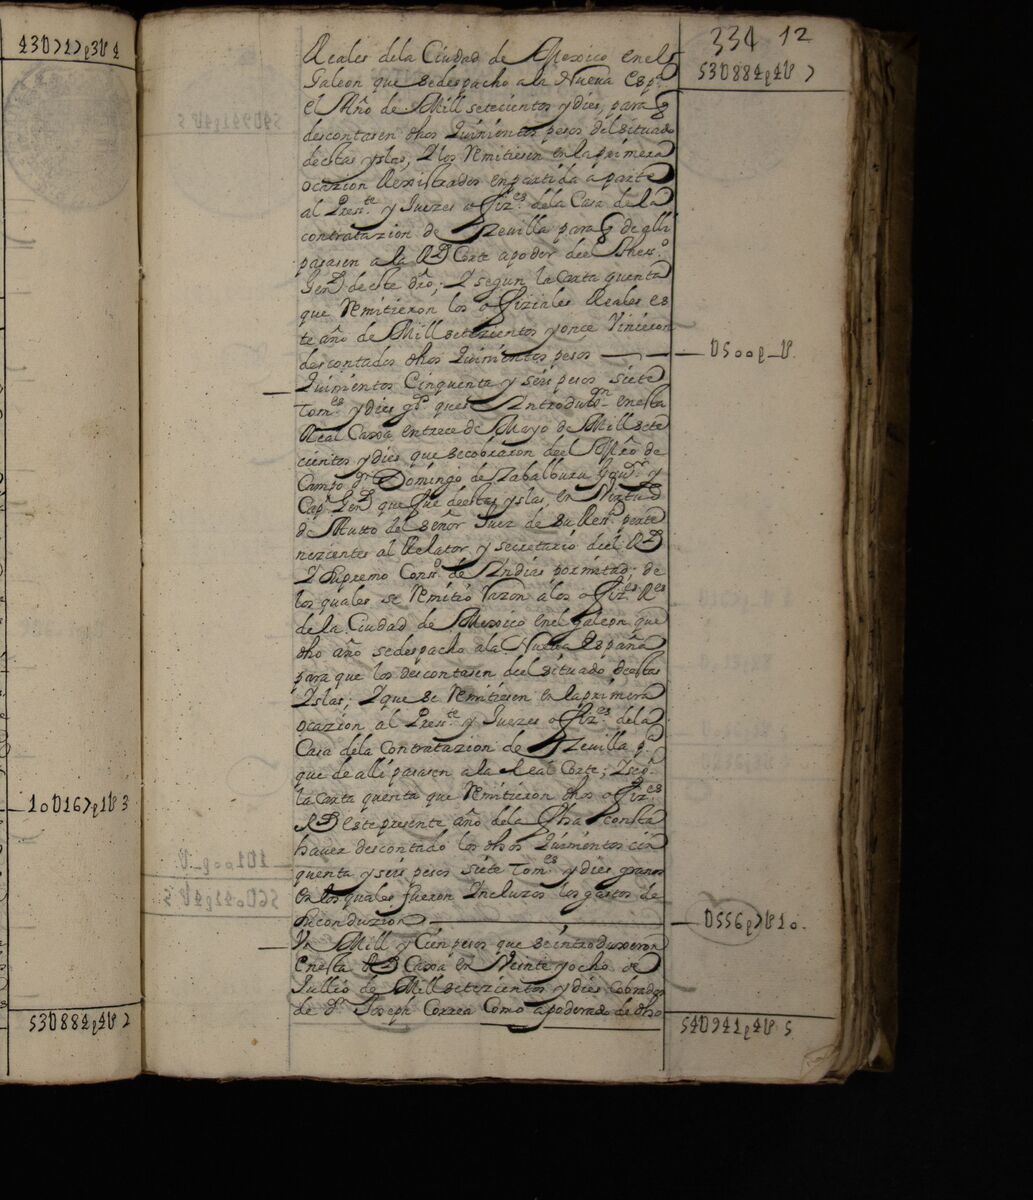 43U717p3U4
10U167p1U3
53U884p4U7
334 12
53U884p4U7
Reales dela Ciudad de Mexico enel
Galeon que sedespacho ala Nueva Espa
el Año de Mill setecientos ydies, para q
descontasen dhos Quinientos pesos del situado
destas yslas, Y los Remitiesen enlaprimera
ocazion Rexistrados enpartida aparte
al Presste y Juezes ofizes dela Casa dela
contratazion de Sevilla para q de alli
pasasen ala Rl Corte apoder del Thesso
Genl deeste dro, Y segun la Carta quenta
que Remitieron los ofiziales Reales es
te año de Mill setezientos yonce Vinieron
descontados dhos Quinientos pesos
U500p_U
Quinientos Cinquenta y seis pesos siete
tomes ydies gs que se Introdugon enesta
Real Caxa entrece de Mayo de Mill sete
cientos ydies que secobraron del Mro de
Campo Dn Domingo de Zabalburu Govr y
Capn Genl que fue destas yslas, en Virtud
de Autto del señor Juez de su Ressa perte
nezientes al Relator y secretario del Rl
Y Supremo Conso de Indias pormitad; de
los quales se Remitio Razon alos ofizes Res
dela Ciudad de Mexico enel galeon que
dho año sedespacho ala Nueva España
para que los descontasen del situado destas
Yslas; Yque se Remitiesen enlaprimera
ocazion al Presste y Juezes ofizes dela
Casa dela Contratazion de Sevilla pa
que de alli pasasen ala Real Corte; Y segn
la Carta quenta que Remitieron dhos ofizes
Rs este presente año dela fha consta
haver descontado los dhos Quinientos cin
quenta yseis pesos siete tomes ydies granos
en los quales fueron Yncluzos los gastos de
su conduzion
U556p7U10
Un Mill y Cien pesos que seintroduxeron
enesta Rl Caxa en Veinte yocho de
Jullio de Mill setezientos ydies Cobrados
de Dn Joseph Correa Como apoderado de dho
54U941p4U5